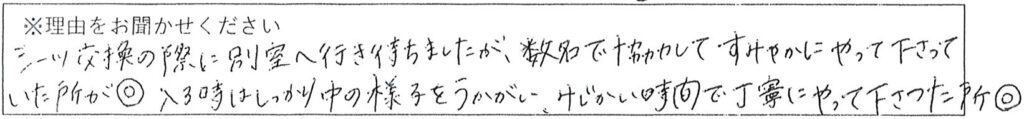 ※理由をお聞かせください
シーツ交換の際に別室へ行き待ちましたが、数名で協力してすみやかにやって下さって
いた所が◎ 入る時はしっかり中の様子をうかがい、みじかい時間で丁寧にやって下さった所◎